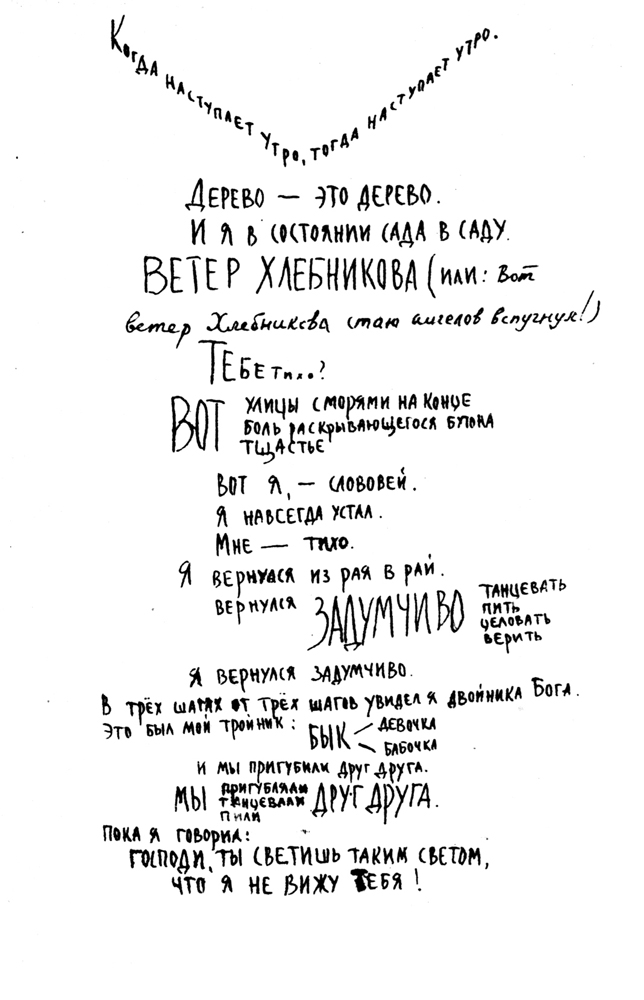 Когда наступает утро, тогда наступает утро.
Дерево — это дерево.
И я в состоянии сада в саду.
ВЕТЕР ХЛЕБНИКОВА (или: Вот
ветер Хлебникова стаю ангелов вспугнул!)
Тебе тихо?
ВОТ улицы с морями на конце
боль раскрывающегося бутона
тщастье
Вот я, — слововей.
Я навсегда устал.
Мне — тихо.
Я вернулся из рая в рай.
вернулся ЗАДУМЧИВО танцевать
пить
целовать
верить
Я вернулся задумчиво.
В трёх шагах от трёх шагов увидел я двойника Бога.
Это был мой тройник: БЫК девочка
бабочка
и мы пригубили друг друга.
МЫ пригубляли ДРУГ ДРУГА.
танцевали
пили
Пока я говорил:
Господи, ты светишь таким светом,
что я не вижу Тебя!